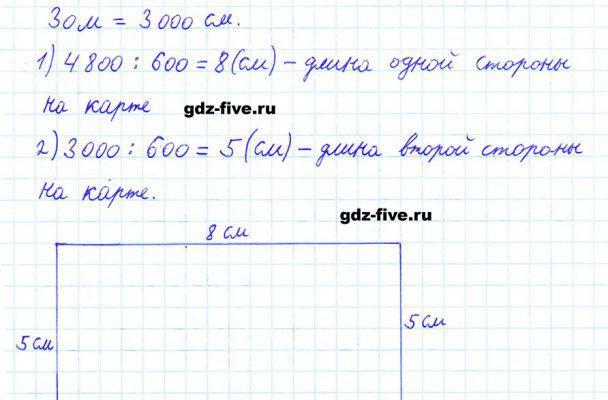 30 м = 3 000 см.
1) 4 800 : 600 = 8 (см) – длина одной стороны
на карте gdz-five.ru
2) 3 000 : 600 = 5 (см) – длина второй стороны
на карте.
gdz-five.ru
8 см
5 см
5 см